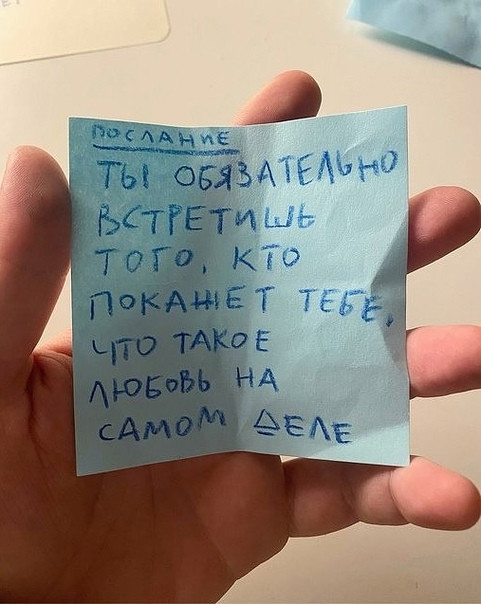 ПОСЛАНИЕ
ТЫ ОБЯЗАТЕЛЬНО
ВСТРЕТИШЬ
ТОГО, КТО
ПОКАЖЕТ ТЕБЕ,
ЧТО ТАКОЕ
ЛЮБОВЬ НА
САМОМ ДЕЛЕ